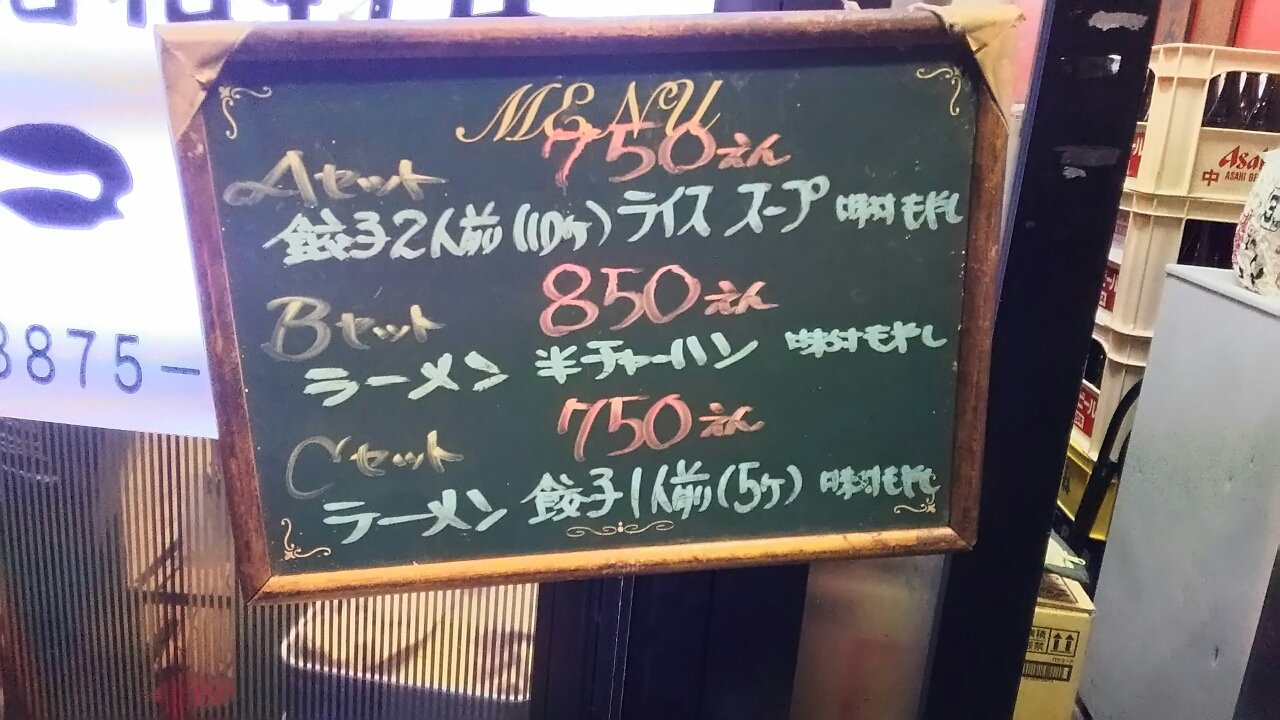 MENU
Aセット 750えん
餃子2人前(10ヶ) ライス スープ 味付もやし
Bセット 850えん
ラーメン 半チャーハン 味付もやし
Cセット 750えん
ラーメン 餃子1人前(5ヶ) 味付もやし
3875-
Asahi
中 ASAHI BE